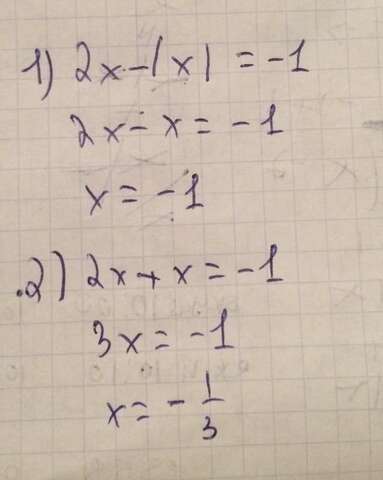 1) 2x-|x| = -1
2x - x = -1
x = -1
2) 2x + x = -1
3x = -1
x = - 1/3